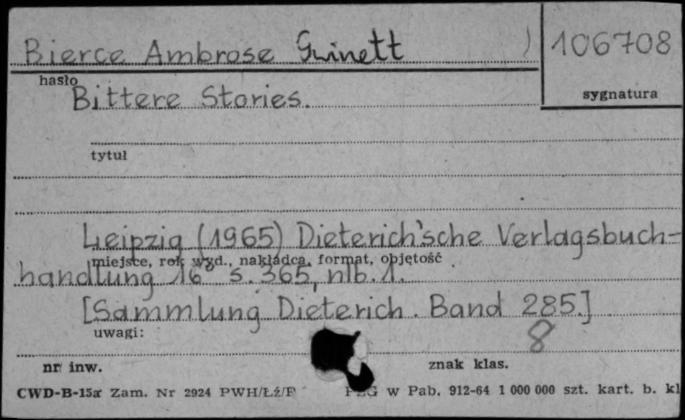 Bierce Ambrose Gwinett ) 106708
hasło
sygnatura
Bittere Stories.
tytuł
Leipzig (1965) Dieterich'sche Verlagsbuch-
miejsce, rok wyd., nakładca, format, objętość
handlung 16° s. 365, nlb. 1.
[Sammlung Dieterich. Band 285.]
uwagi:
8
nr inw.
znak klas.
CWD-B-15a Zam. Nr 2924 PWH/Łź/F w Pab. 912-64 1 000 000 szt. kart. b. kl